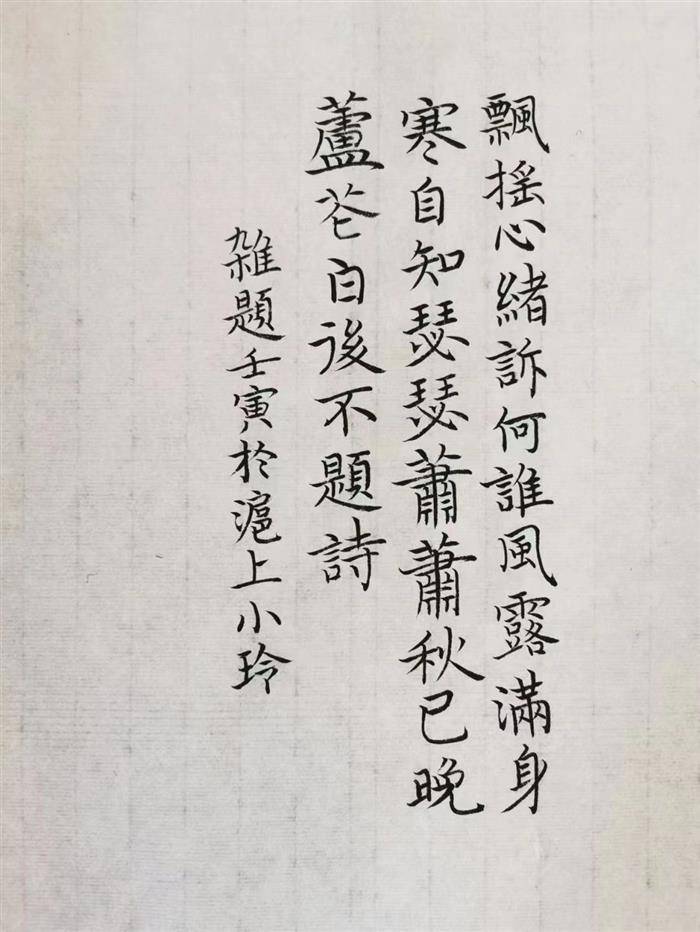 飄揺心緒訴何誰風露滿身
寒自知瑟瑟蕭蕭秋已晚
蘆花白後不題詩
雑題壬寅於滬上小玲